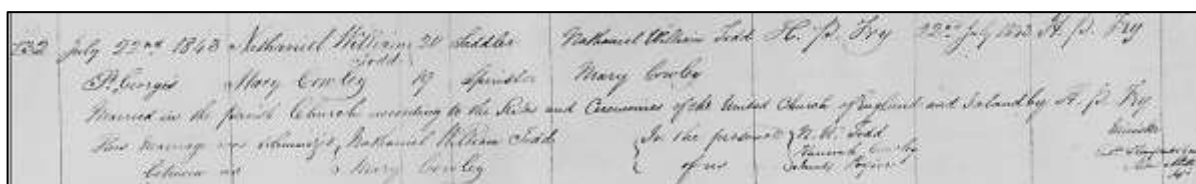 132 July 22nd 1843 Nathaniel William Todd 20 Saddler Nathaniel William Todd H. P. Fry 22nd July 1843 H. P. Fry
St. Georges Mary Cowley 19 Spinster Mary Cowley
Married in the Parish Church according to the Rites and Ceremonies of the United Church of England and Ireland by H. P. Fry
This Marriage was solemnized Nathaniel William Todd In the presence N. W. Todd Minister
between us Mary Cowley of us Hannah Cowley